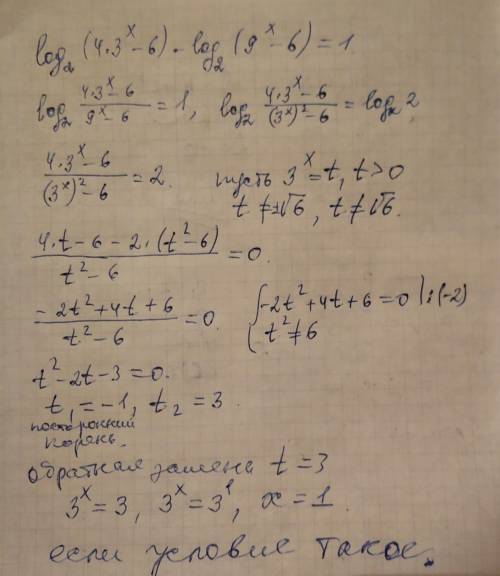 log₂(4·3ˣ-6) - log₂(9ˣ-6) = 1
log₂ (4·3ˣ-6)/(9ˣ-6) = 1, log₂ (4·3ˣ-6)/((3ˣ)²-6) = log₂ 2
(4·3ˣ-6)/((3ˣ)²-6) = 2. пусть 3ˣ=t, t>0
t ≠ ±√6, t ≠ √6.
(4·t-6-2·(t²-6))/(t²-6) = 0.
(-2t²+4t+6)/(t²-6) = 0. { -2t²+4t+6=0 |:(-2)
t² ≠ 6
t²-2t-3=0.
t₁=-1, t₂=3.
посторонний
корень.
обратная замена t=3
3ˣ=3, 3ˣ=3¹, x=1
если условие такое.